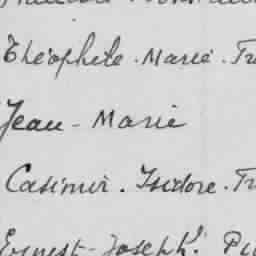 Théophile. Marie. Fr
Jean - Marie
Casimir. Isidore. Fr
Ernest - Joseph.